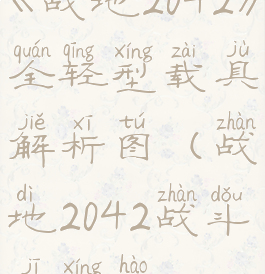 《战地2042》
quán qīng xíng zài jù
全轻型载具
jiě xī tú zhàn
解析图(战
dì zhàn dǒu
地2042战斗
jī xíng hào